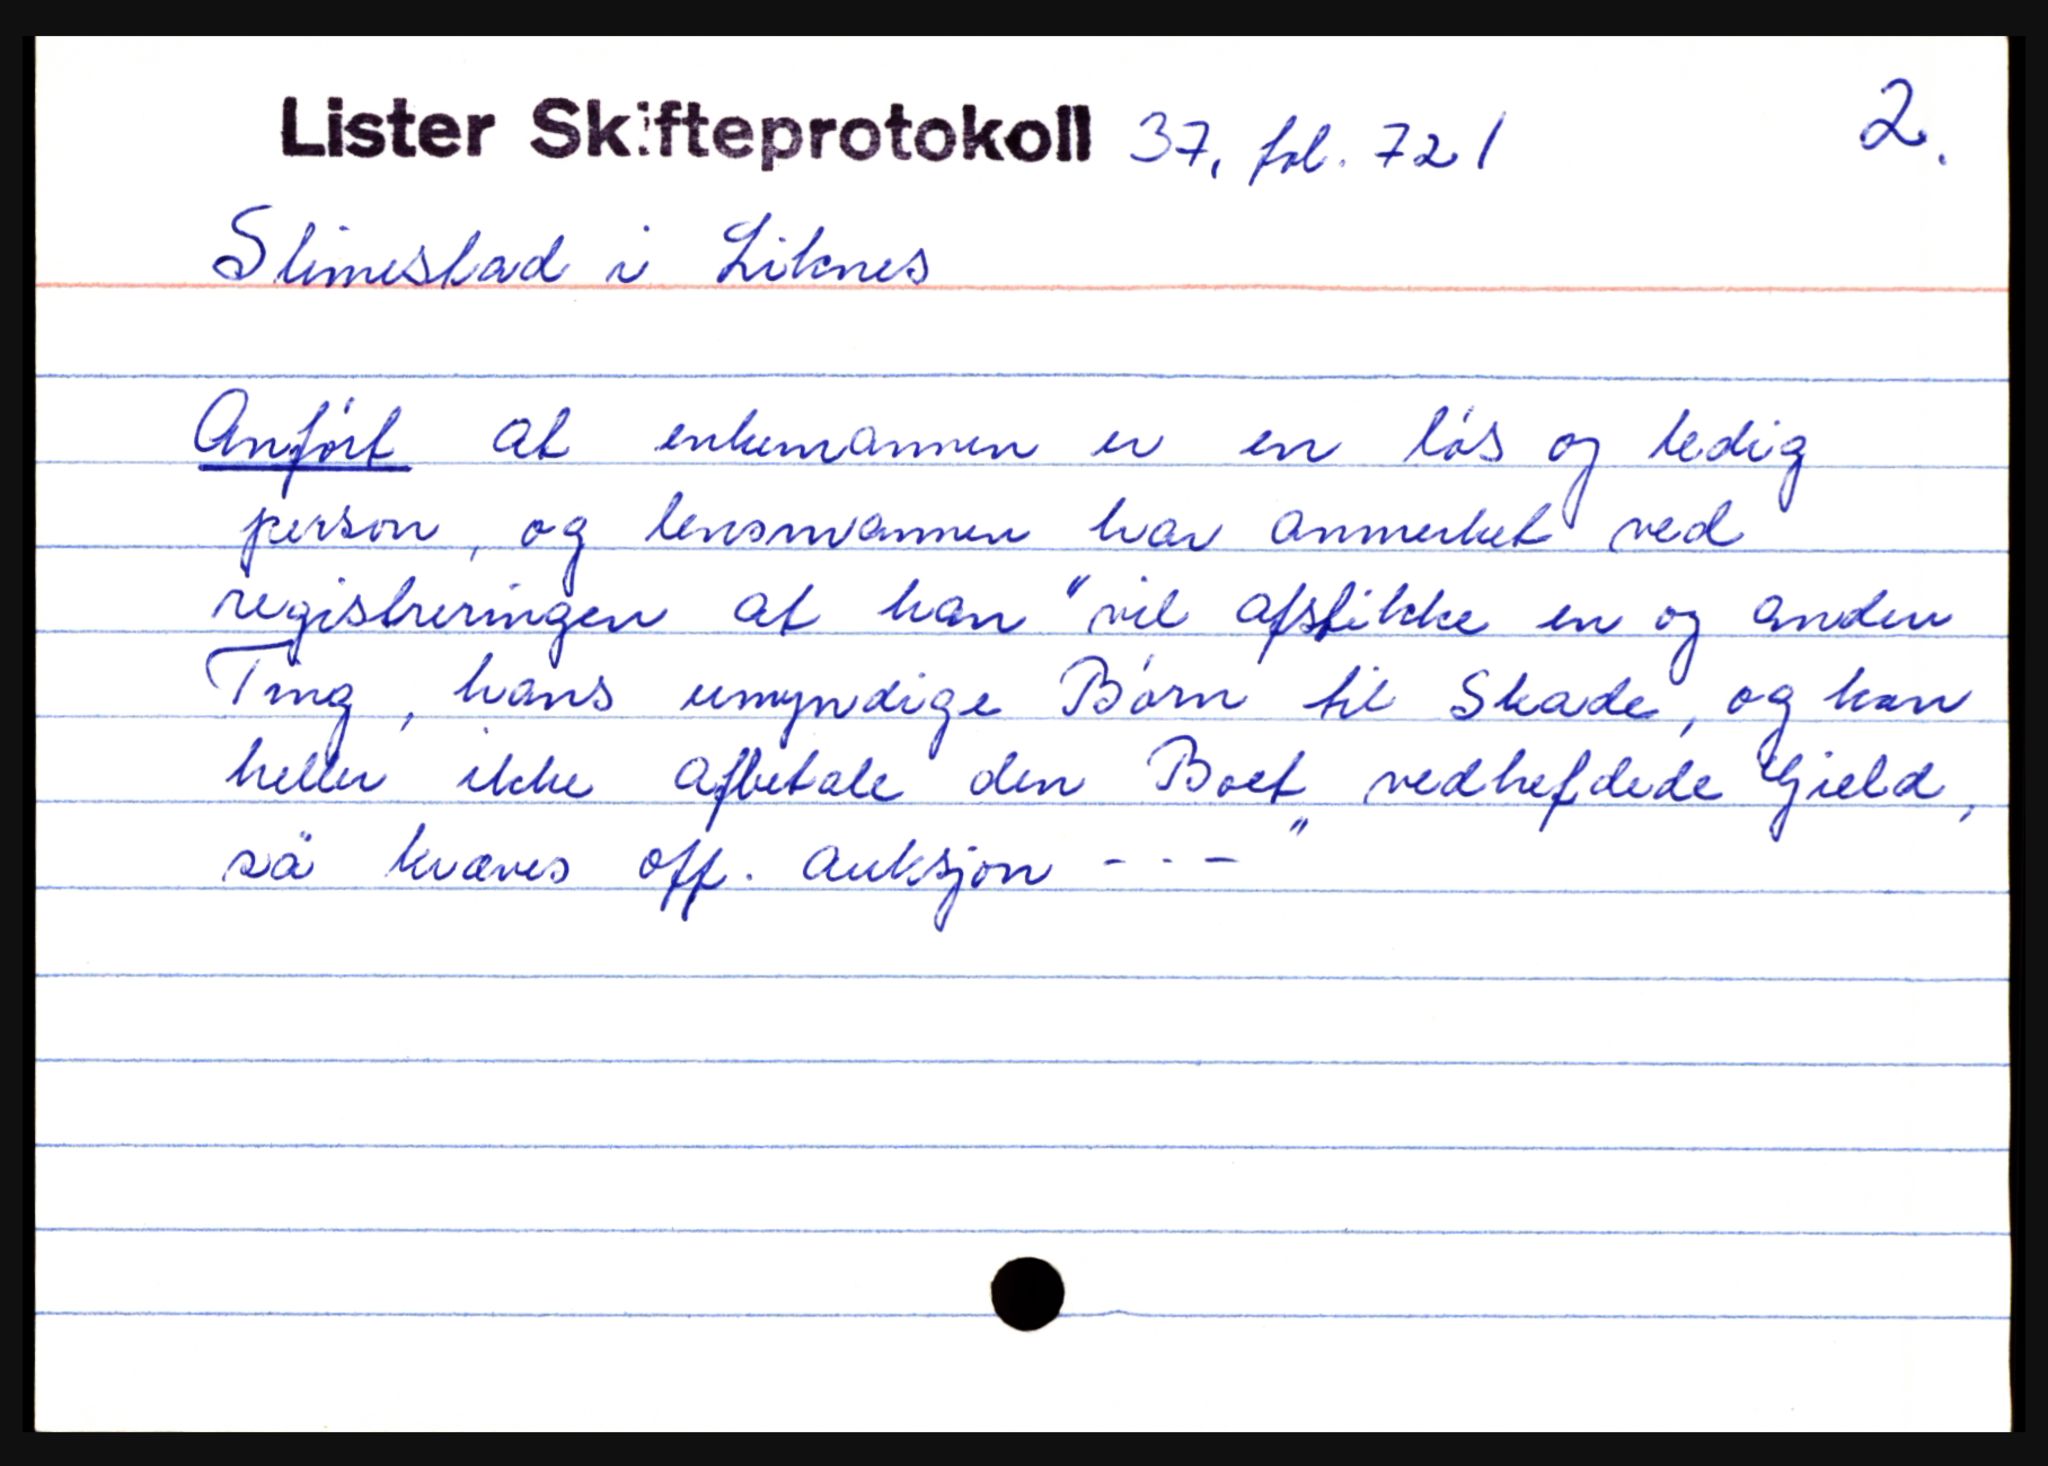 Lister Skifteprotokoll 37, fol. 721 2.
Slimestad i Liknes
Anført at enkemannen er en løs og ledig
person, og lensmannen har anmerket ved
registreringen at han "vil afstikke en og anden
Ting, hans umyndige Børn til Skade, og kan
heller ikke afbetale den Boet vedhefdede Gjeld,
så kræves off. auksjon - - -"